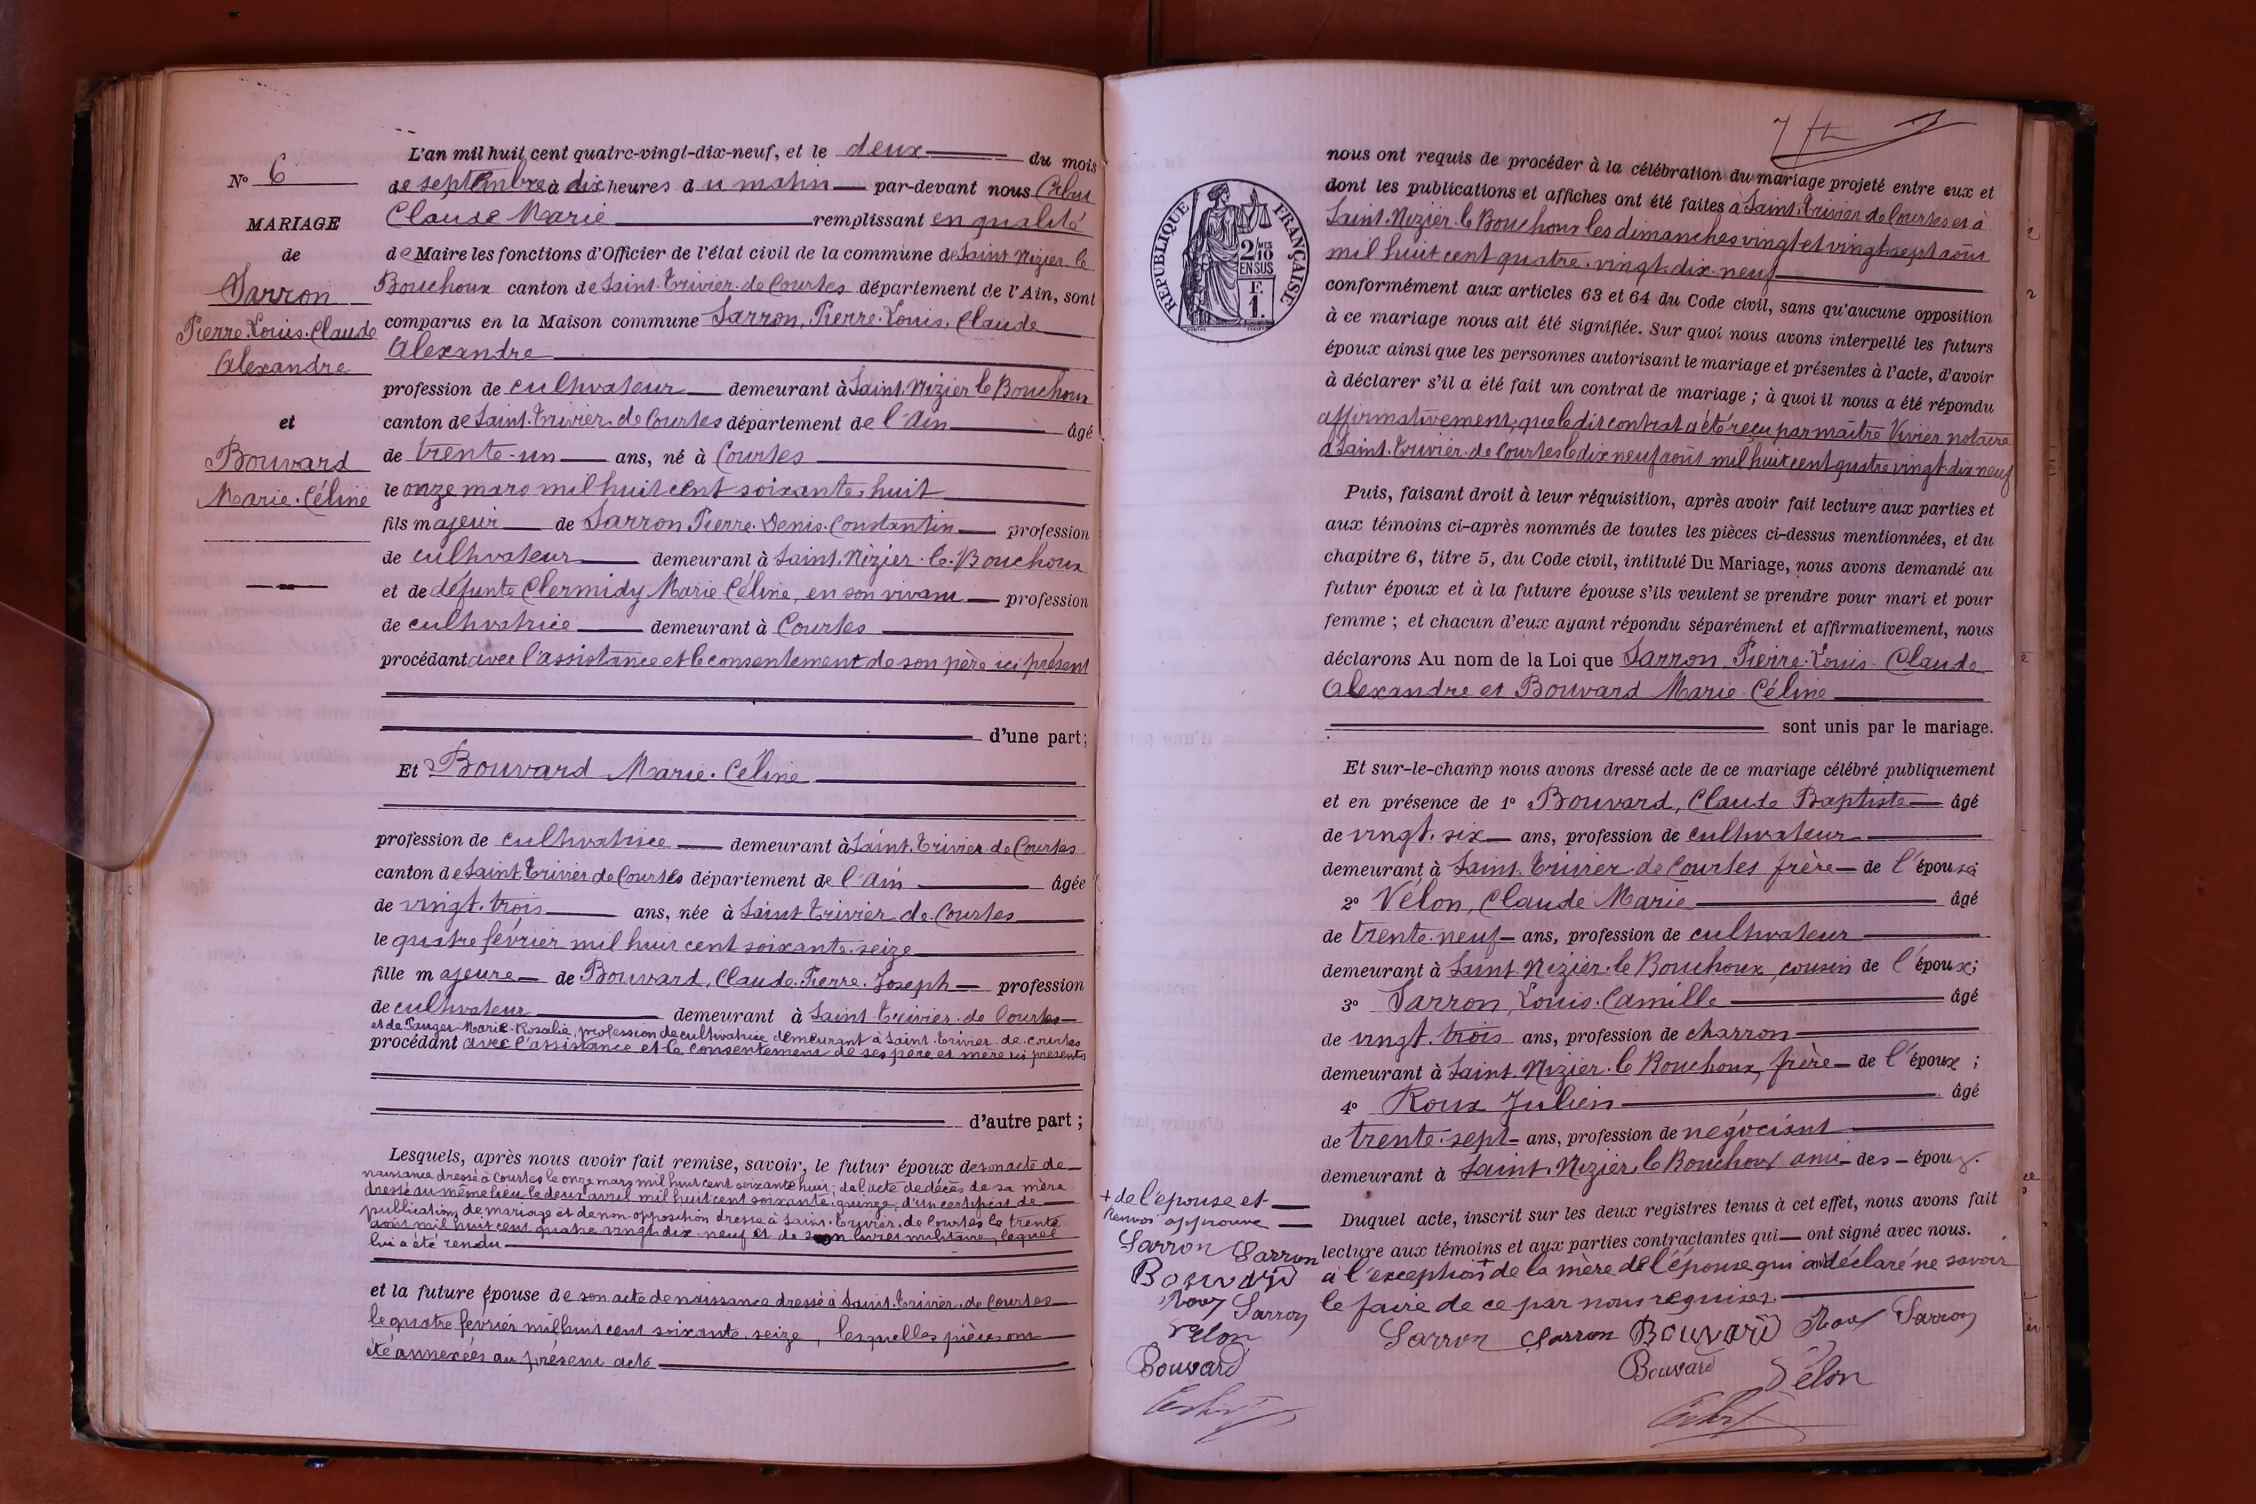 N° 6
MARIAGE
de
Sarron
Pierre. Louis. Claude
Alexandre
et
Bouvard
Marie. Céline
L'an mil huit cent quatre-vingt-dix-neuf, et le deux du mois
de septembre à dix heures du matin par-devant nous
Claude Marie remplissant en qualité
de Maire les fonctions d'Officier de l'état civil de la commune de Saint Nizier. le
Bouchoux canton de Saint. Trivier. de Courtes département de l'Ain, sont
comparus en la Maison commune Sarron, Pierre. Louis. Claude
Alexandre
profession de cultivateur demeurant à Saint. Nizier le Bouchoux
canton de Saint. Trivier. de Courtes département de l'Ain âgé
de trente-un ans, né à Courtes
le onze mars mil huit cent soixante. huit
fils majeur de Sarron Pierre. Denis. Constantin profession
de cultivateur demeurant à Saint. Nizier. le. Bouchoux
et de défunte Clermidy Marie Céline, en son vivant profession
de cultivatrice demeurant à Courtes
procédant avec l'assistance et le consentement de son père ici présent
d'une part;
Et Bouvard Marie. Céline
profession de cultivatrice demeurant à Saint. Trivier de Courtes
canton de Saint Trivier de Courtes département de l'Ain âgée
de vingt. trois ans, née à Saint Trivier. de. Courtes
le quatre février mil huit cent soixante. seize
fille majeure de Bouvard, Claude. Pierre. Joseph profession
de cultivateur demeurant à Saint. Trivier. de Courtes
et de Tauger Marie-Rosalie, profession de cultivatrice demeurant à Saint. Trivier. de. Courtes
procédant avec l'assistance et le consentement de ses père et mère ici présents
d'autre part;
Lesquels, après nous avoir fait remise, savoir, le futur époux de son acte de
naissance dressé à Courtes le onze mars mil huit cent soixante huit; de l'acte de décès de sa mère
dressé au même lieu le deux avril mil huit cent soixante. quinze, d'un certificat de
publications de mariage et de non-opposition dressé à Saint. Trivier. de Courtes le trente
août mil huit cent quatre vingt. dix. neuf et de son livret militaire, lequel
lui a été rendu
et la future épouse de son acte de naissance dressé à Saint. Trivier. de Courtes
le quatre février mil huit cent soixante. seize, lesquelles pièces ont
été annexées au présent acte
RÉPUBLIQUE FRANÇAISE
2/10
EN SUS
F.
1.
nous ont requis de procéder à la célébration du mariage projeté entre eux et
dont les publications et affiches ont été faites à Saint. Trivier de Courtes et à
Saint. Nizier. le Bouchoux les dimanches vingt et vingt-sept août
mil huit cent quatre. vingt. dix. neuf
conformément aux articles 63 et 64 du Code civil, sans qu'aucune opposition
à ce mariage nous ait été signifiée. Sur quoi nous avons interpellé les futurs
époux ainsi que les personnes autorisant le mariage et présentes à l'acte, d'avoir
à déclarer s'il a été fait un contrat de mariage; à quoi il nous a été répondu
affirmativement, que le dit contrat a été reçu par maître Vivier notaire
à Saint. Trivier. de Courtes le dix neuf août mil huit cent quatre vingt. dix neuf
Puis, faisant droit à leur réquisition, après avoir fait lecture aux parties et
aux témoins ci-après nommés de toutes les pièces ci-dessus mentionnées, et du
chapitre 6, titre 5, du Code civil, intitulé Du Mariage, nous avons demandé au
futur époux et à la future épouse s'ils veulent se prendre pour mari et pour
femme; et chacun d'eux ayant répondu séparément et affirmativement, nous
déclarons Au nom de la Loi que Sarron Pierre. Louis. Claude
Alexandre et Bouvard Marie. Céline
sont unis par le mariage.
Et sur-le-champ nous avons dressé acte de ce mariage célébré publiquement
et en présence de 1° Bouvard, Claude Baptiste âgé
de vingt. six ans, profession de cultivateur
demeurant à Saint. Trivier de Courtes frère de l'épouse
2° Vélon, Claude Marie âgé
de trente. neuf ans, profession de cultivateur
demeurant à Saint Nizier. le Bouchoux, cousin de l'époux;
3° Sarron, Louis. Camille âgé
de vingt. trois ans, profession de charron
demeurant à Saint. Nizier. le Bouchoux, frère de l'époux;
4° Roux Julien âgé
de trente. sept ans, profession de négociant
demeurant à Saint. Nizier. le Bouchoux ami des époux.
Duquel acte, inscrit sur les deux registres tenus à cet effet, nous avons fait
lecture aux témoins et aux parties contractantes qui ont signé avec nous.
à l'exception + de la mère de l'épouse qui a déclaré ne savoir
le faire de ce par nous requises.
Sarron Sarron Bouvard Roux Sarron
Bouvard Vélon
+ de l'épouse et
Renvoi approuvé
Sarron Sarron
Bouvard
Roux Sarron
Vélon
Bouvard